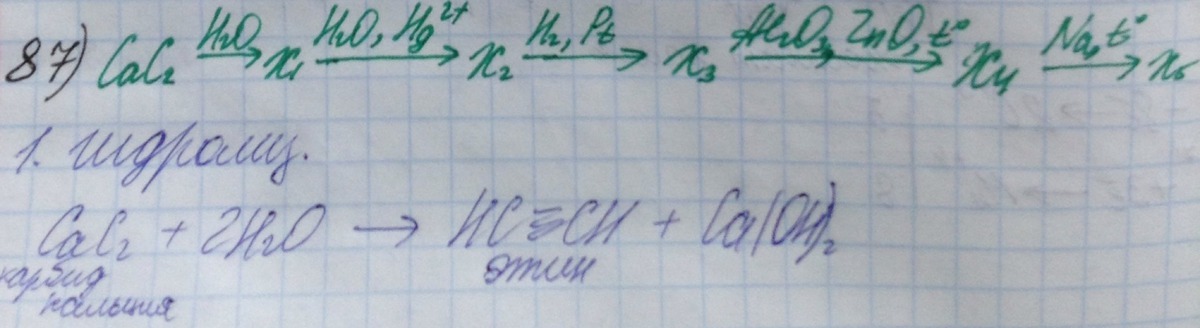 87) CaC₂ —H₂O→ x₁ —H₂O, Hg²⁺→ x₂ —H₂, Pt→ x₃ —Al₂O₃, ZnO, t°→ x₄ —Na, t°→ x₅
1. гидролиз.
CaC₂ + 2H₂O → HC≡CH + Ca(OH)₂
карбид этин
кальция